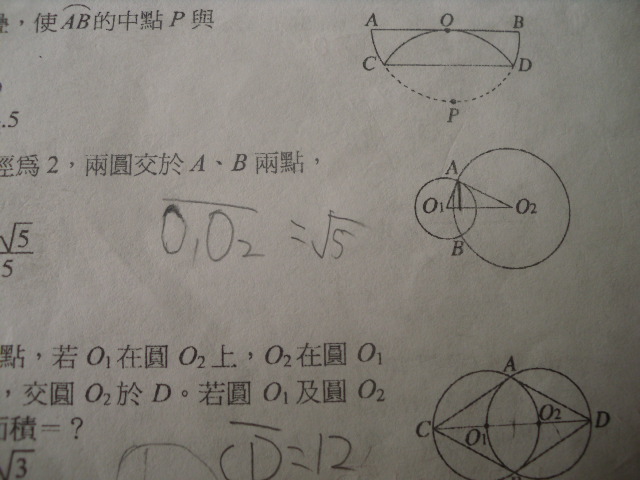 ，使AB的中點 P 與
A O B
C D
.5
P
經爲 2，兩圓交於 A、B 兩點，
A
O₁ O₂
B
O₁O₂ = √5
√5
5
點，若 O₁ 在圓 O₂ 上，O₂ 在圓 O₁
A
，交圓 O₂ 於 D。若圓 O₁ 及圓 O₂
C O₁ O₂ D
面積＝？
√3
CD = 12